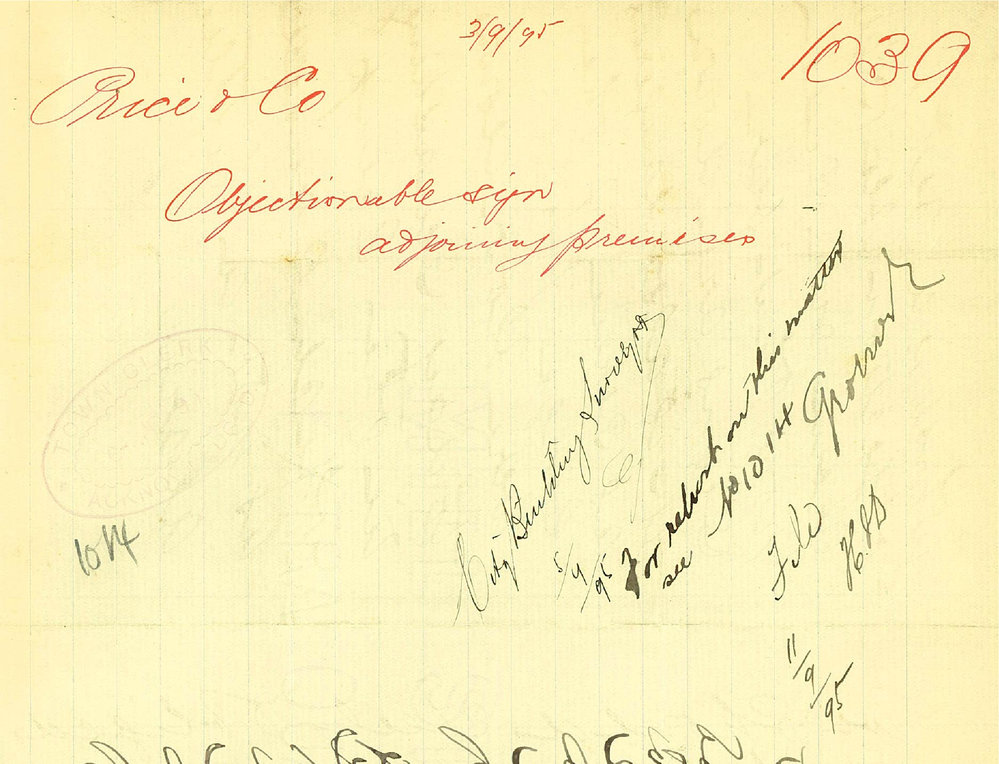 3/9/95
1039
Price & Co
Objectionable sign
adjoining premises
TOWN CL
ACKNO
1014
City Building Surveyor
5/9/95
For report on this matter
see No 1014
File
11/9/95